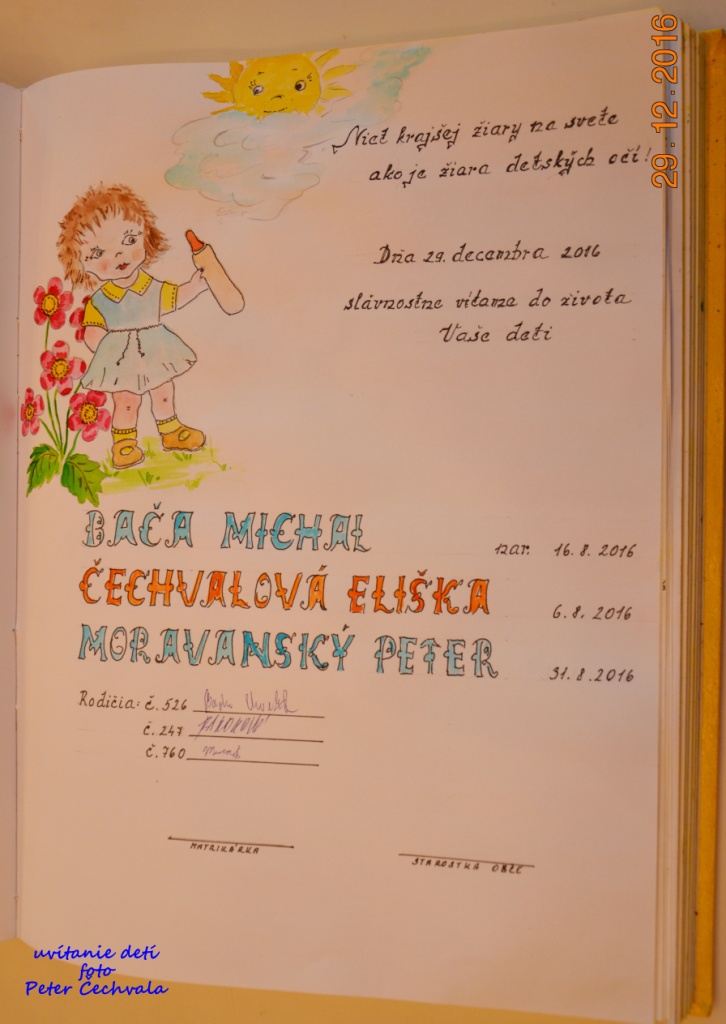 29.12.2016
Niet krajšej žiary na svete
ako je žiara detských očí!
Dňa 29. decembra 2016
slávnostne vítame do života
Vaše deti
BAČA MICHAL nar. 16.8.2016
ČECHVALOVÁ ELIŠKA 6.8.2016
MORAVANSKÝ PETER 31.8.2016
Rodičia: č.526
č.247
č.760
MATRIKÁRKA
STAROSTKA OBCE
uvítanie detí
foto
Peter Cechvala